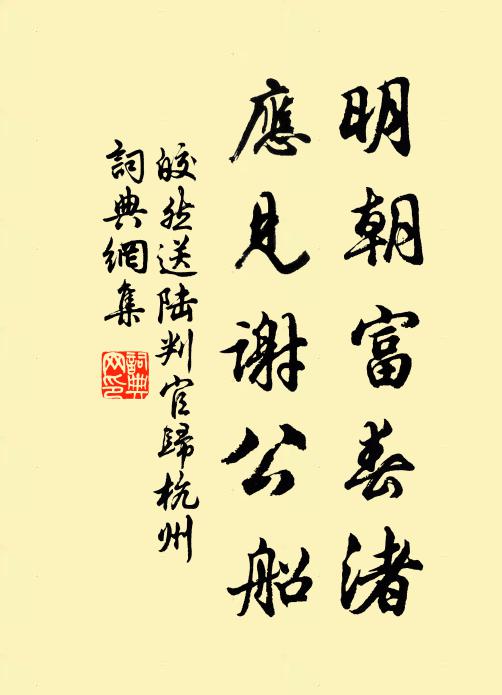 明朝富春渚
應見謝公船
皎然送陆判官歸杭州
詞典網集
詞典網印